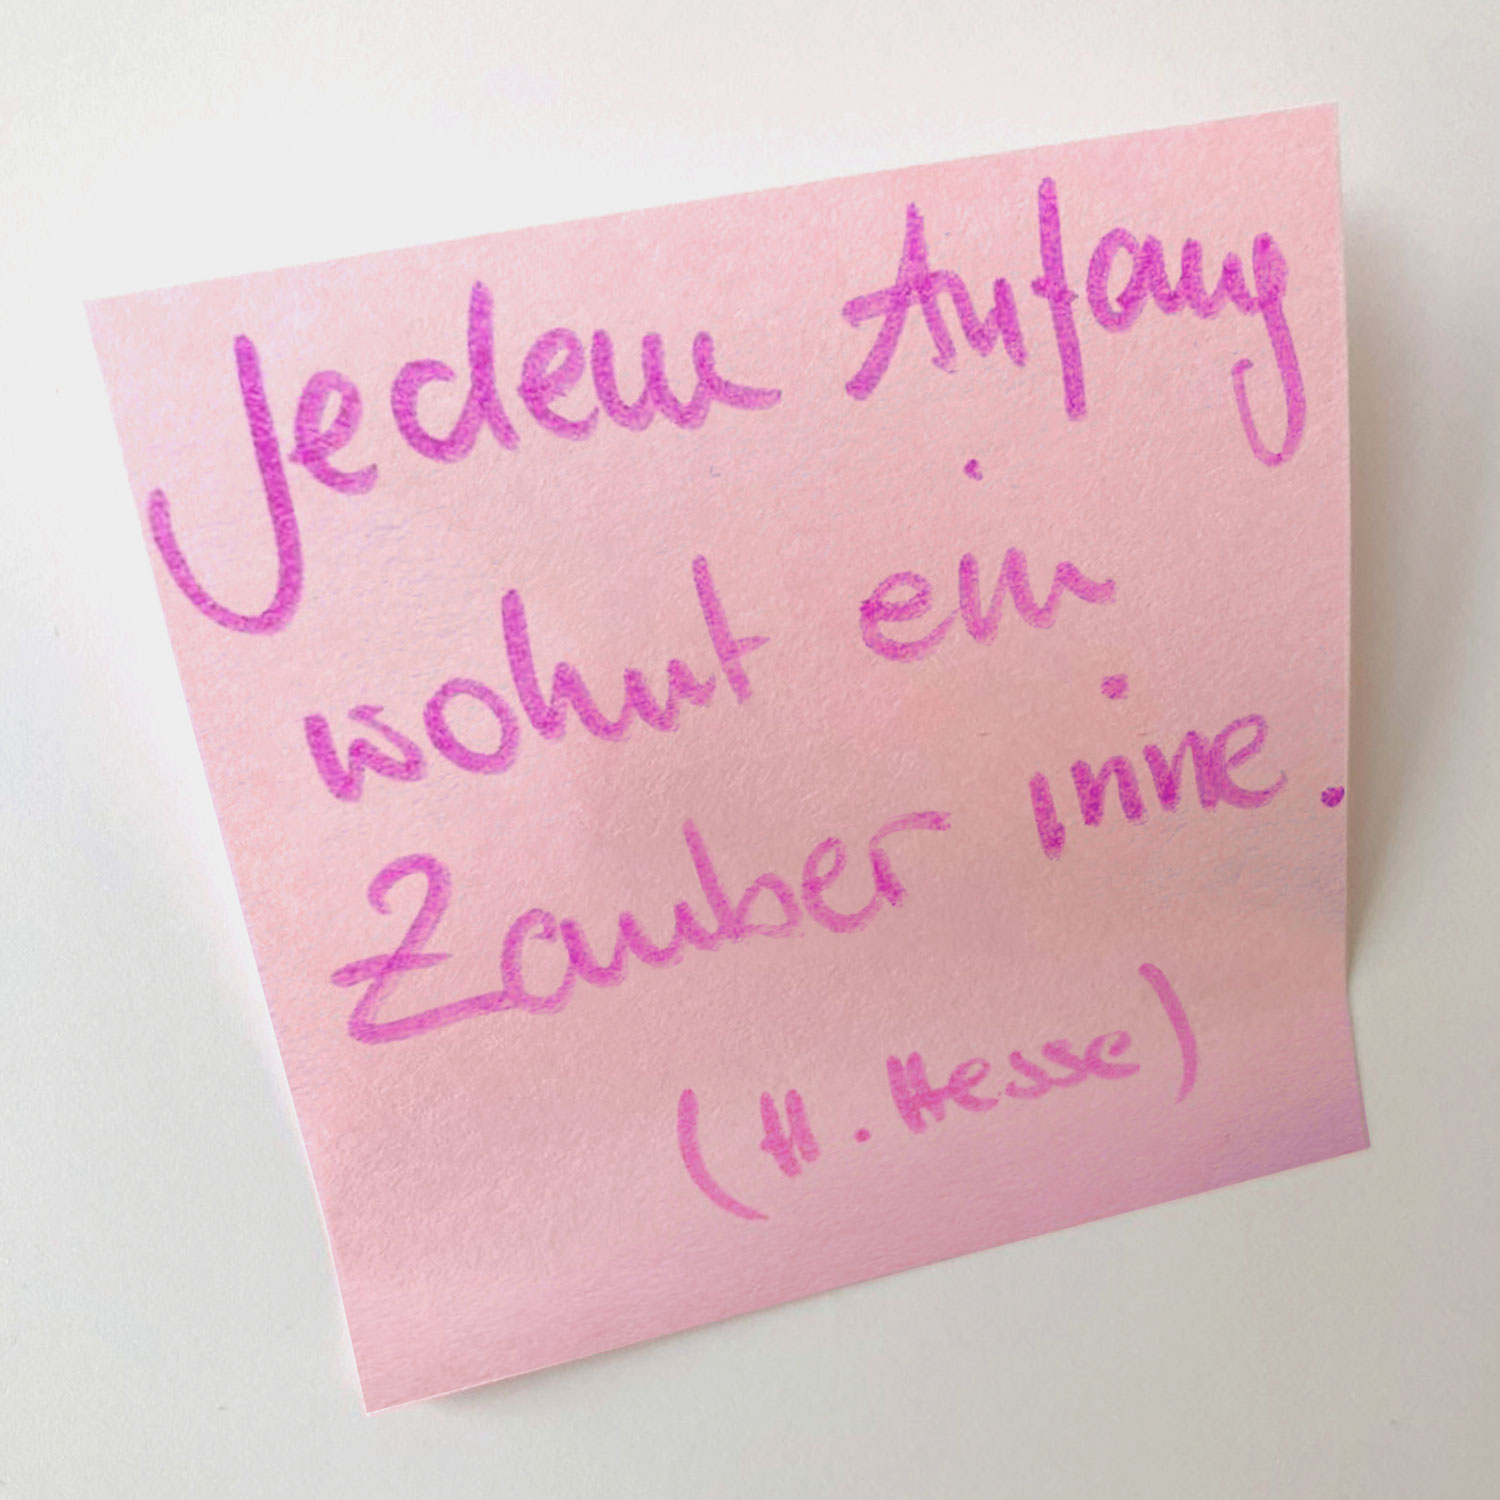 Jedem Anfang
wohnt ein
Zauber inne.
(H. Hesse)